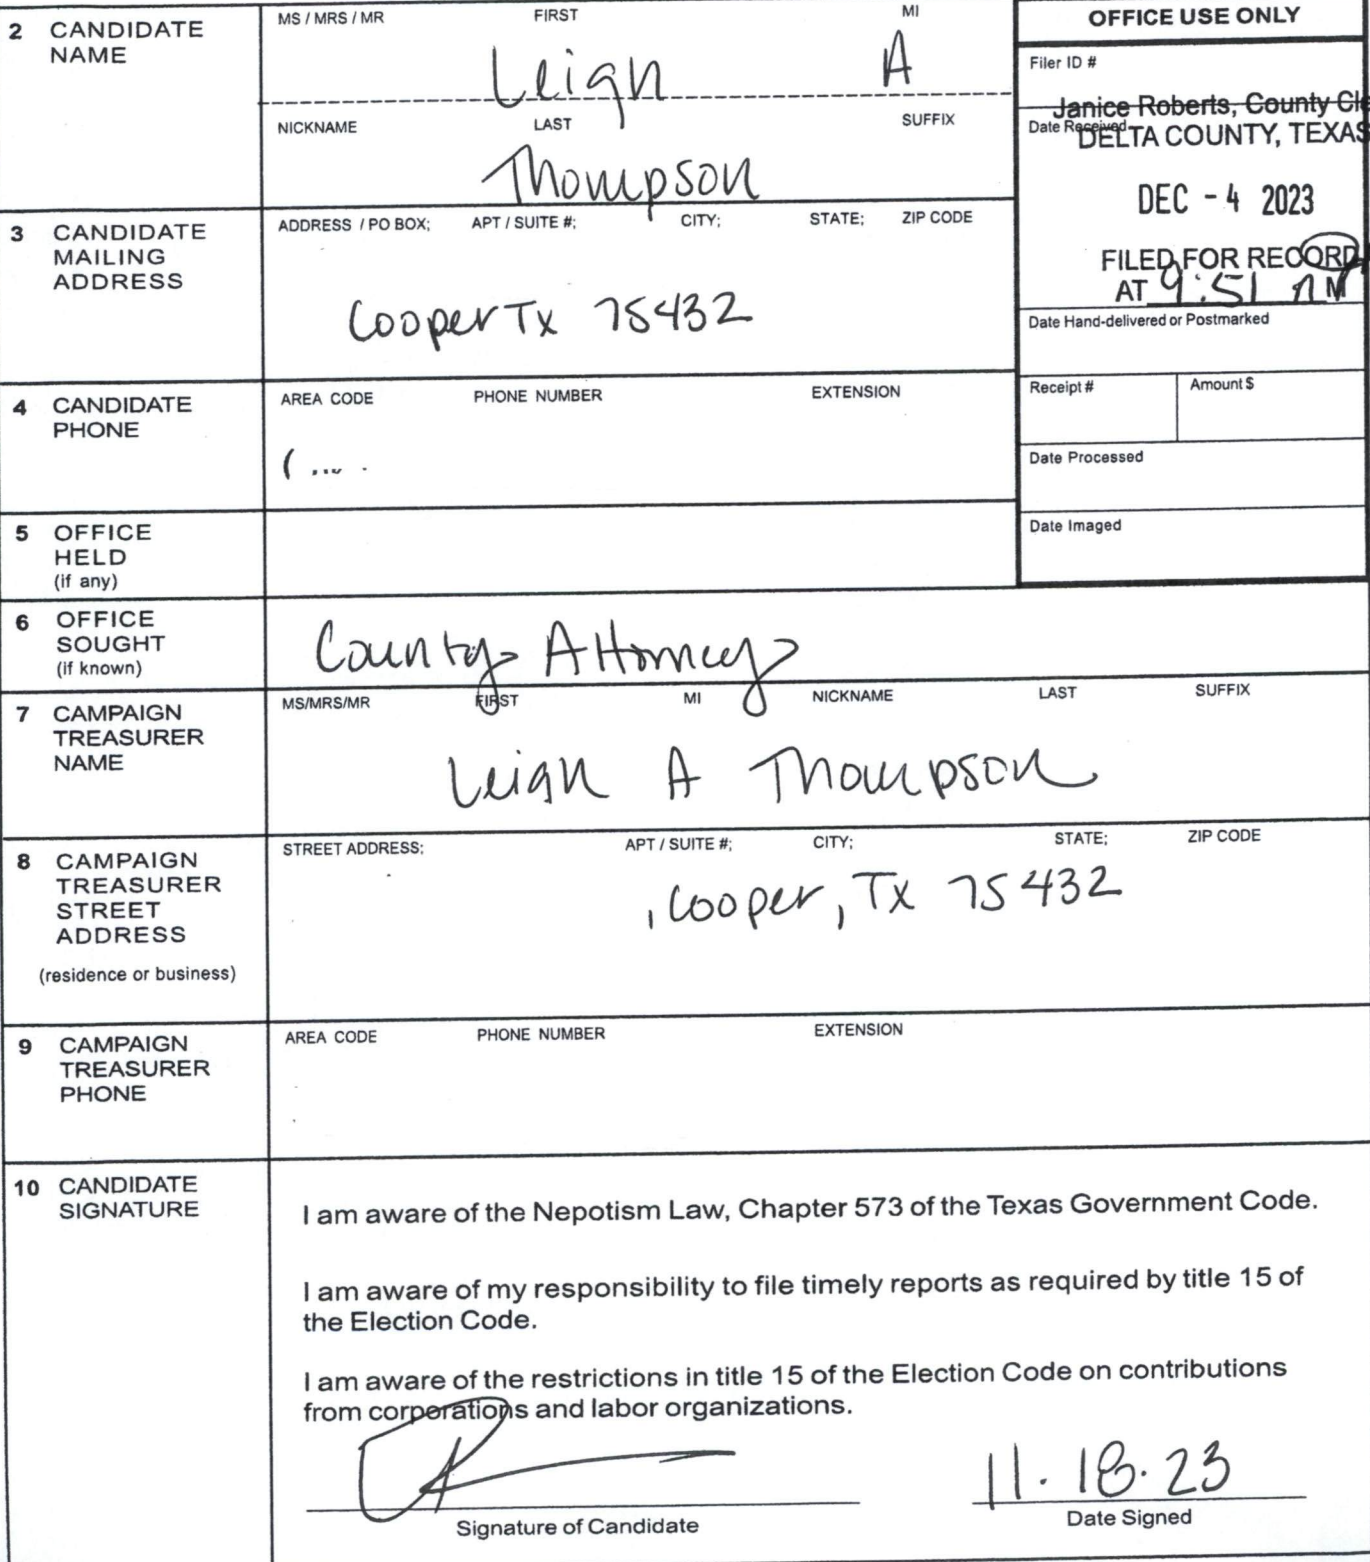 2 CANDIDATE NAME
MS / MRS / MR FIRST MI
Leigh A
NICKNAME LAST SUFFIX
Thompson
OFFICE USE ONLY
Filer ID #
Janice Roberts, County Cle
Date Received
DELTA COUNTY, TEXAS
DEC - 4 2023
FILED FOR RECORD
AT 9:51 AM
Date Hand-delivered or Postmarked
Receipt # Amount $
Date Processed
Date Imaged
3 CANDIDATE MAILING ADDRESS
ADDRESS / PO BOX; APT / SUITE #; CITY; STATE; ZIP CODE
Cooper Tx 75432
4 CANDIDATE PHONE
AREA CODE PHONE NUMBER EXTENSION
(
5 OFFICE HELD (if any)
6 OFFICE SOUGHT (if known)
County Attorney
7 CAMPAIGN TREASURER NAME
MS/MRS/MR FIRST MI NICKNAME LAST SUFFIX
Leigh A Thompson
8 CAMPAIGN TREASURER STREET ADDRESS
(residence or business)
STREET ADDRESS; APT / SUITE #; CITY; STATE; ZIP CODE
, Cooper, Tx 75432
9 CAMPAIGN TREASURER PHONE
AREA CODE PHONE NUMBER EXTENSION
10 CANDIDATE SIGNATURE
I am aware of the Nepotism Law, Chapter 573 of the Texas Government Code.
I am aware of my responsibility to file timely reports as required by title 15 of
the Election Code.
I am aware of the restrictions in title 15 of the Election Code on contributions
from corporations and labor organizations.
11.18.23
Signature of Candidate Date Signed